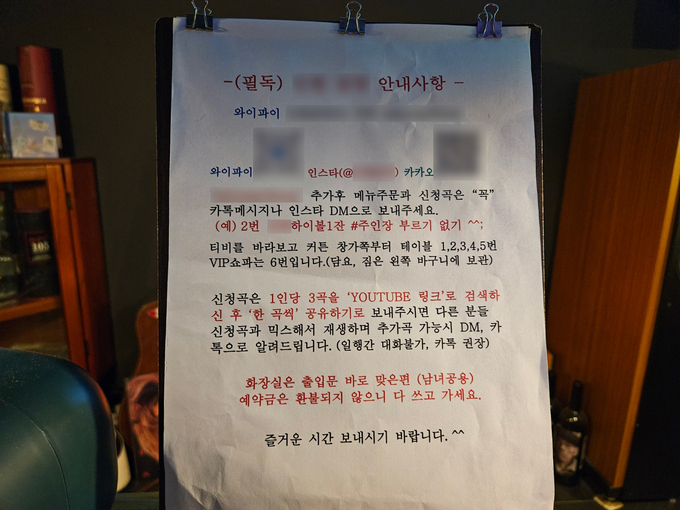 -(필독) 안내사항 -
와이파이
와이파이 인스타(@ ) 카카오
추가후 메뉴주문과 신청곡은 “꼭”
카톡메시지나 인스타 DM으로 보내주세요.
(예) 2번 하이볼1잔 #주인장 부르기 없기 ^^;
티비를 바라보고 커튼 창가쪽부터 테이블 1,2,3,4,5번
VIP쇼파는 6번입니다.(담요, 짐은 왼쪽 바구니에 보관)
신청곡은 1인당 3곡을 ‘YOUTUBE 링크’로 검색하
신 후 ‘한 곡씩’ 공유하기로 보내주시면 다른 분들
신청곡과 믹스해서 재생하며 추가곡 가능시 DM, 카
톡으로 알려드립니다. (일행간 대화불가, 카톡 권장)
화장실은 출입문 바로 맞은편 (남녀공용)
예약금은 환불되지 않으니 다 쓰고 가세요.
즐거운 시간 보내시기 바랍니다. ^^